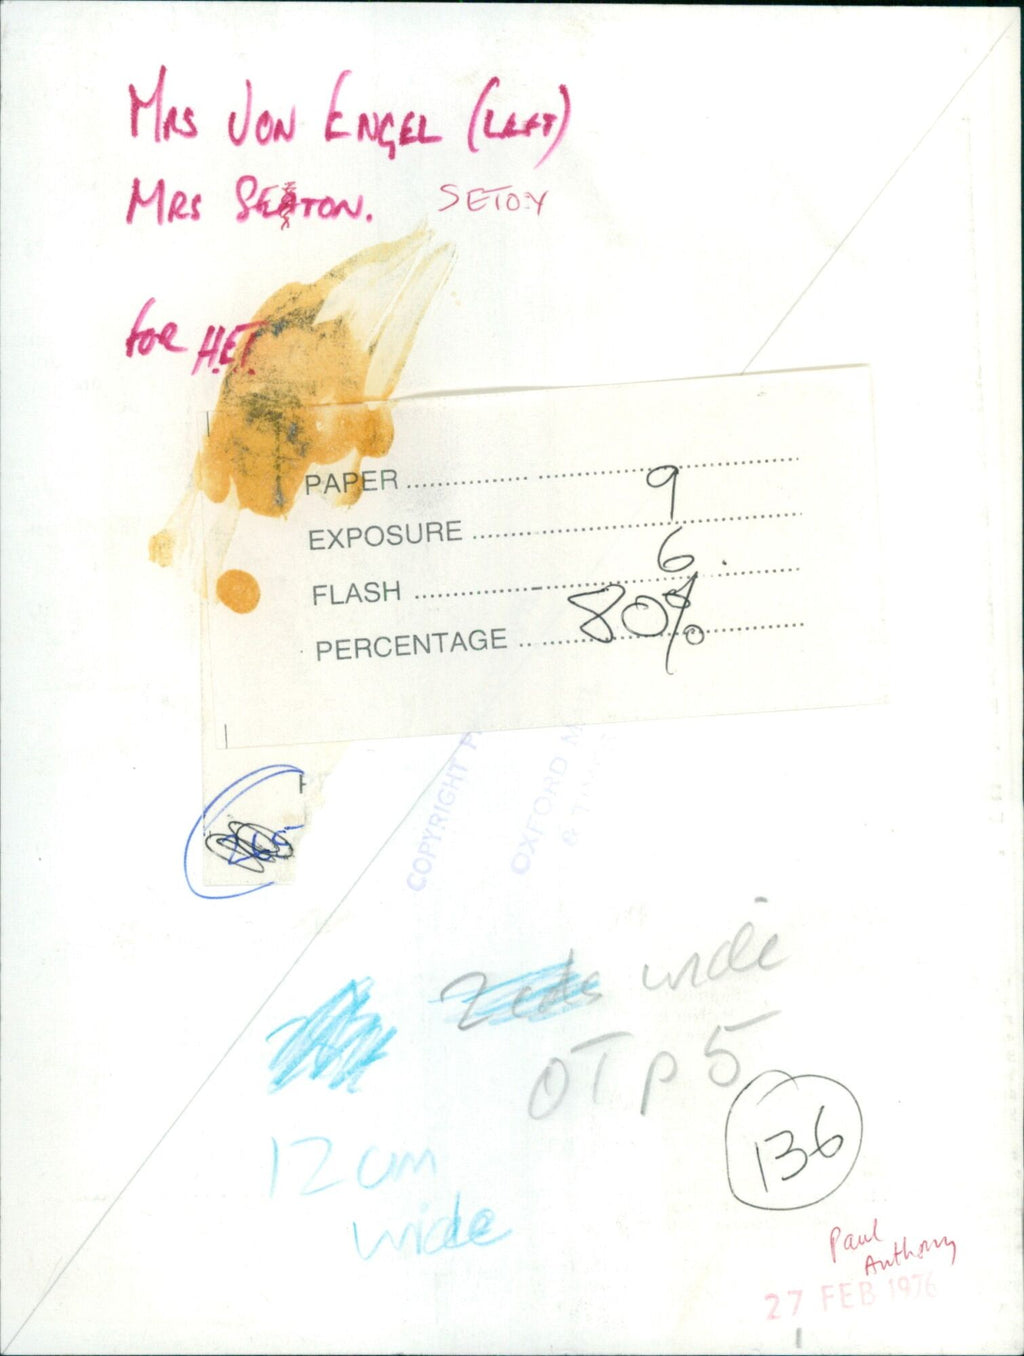 MRS VON ENGEL (LEFT)
MRS SEATON. SETON
FOR H.E.T.
PAPER
EXPOSURE 9
FLASH 6.
PERCENTAGE 80%
COPYRIGHT
OXFORD
&
wide
OT p 5
136
12 cm
wide
Paul
Anthony
27 FEB 1976